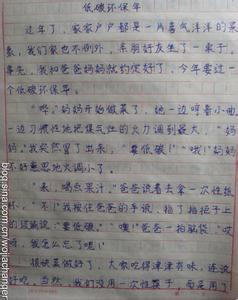 低碳环保年
过年了，家家户户都是一片喜气洋洋的景
象，我们家也不例外，亲朋好友坐了一桌子。
事先，我和爸爸妈妈就约定好了，今年要过一
个低碳环保年。
“哗”妈妈开始做菜了，她一边哼着小曲
一边习惯性地把煤气灶的火力调到最大，“妈
妈”我突然冒了出来，“要低碳！”“哦！”妈妈
不好意思地火调小了。
“来，喝点果汁。”爸爸说着去拿一次性纸
杯。“不！”我按住爸爸的手说，指了指柜子上
说：“要低碳。”“噢！”爸爸一拍脑袋，“哎
呀，我怎么忘了呢！”
很快菜做好了，大家吃得津津有味，连说
好吃。当然，我们没用一次性筷子，而是用了
blog.sina.com.cn/wojiachanger